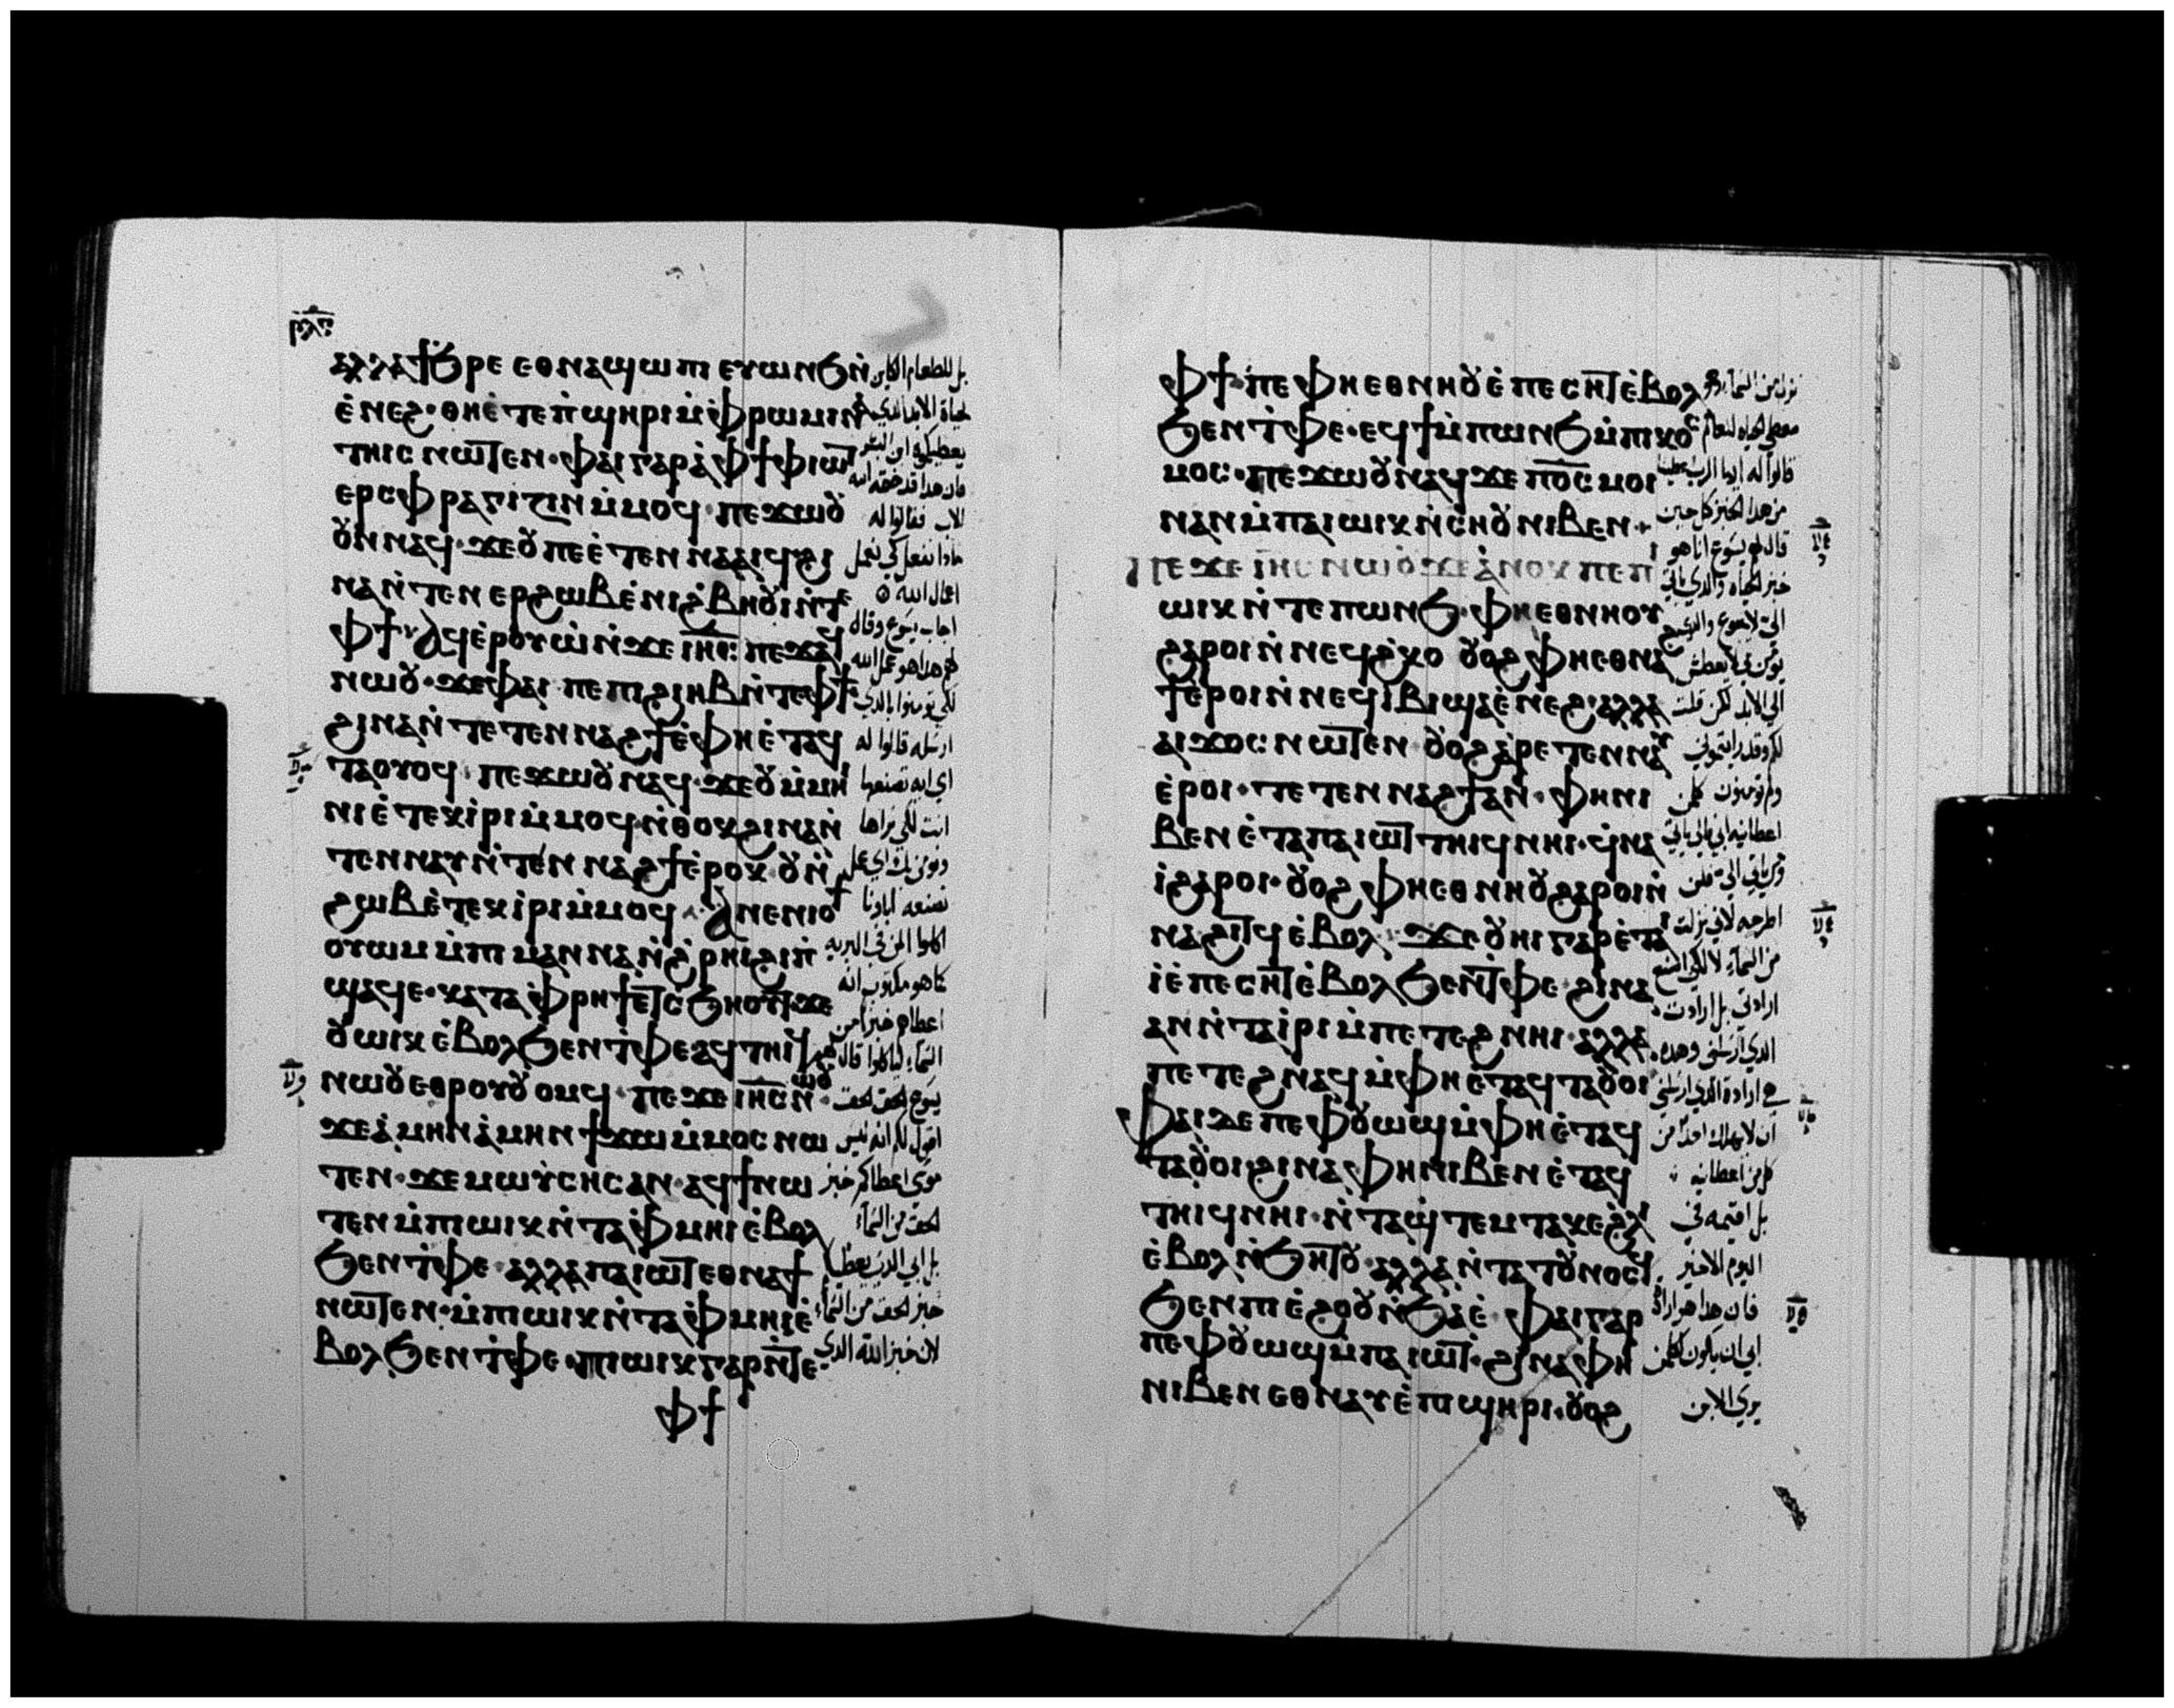 ⲁⲗⲗⲁϯϧⲣⲉ ⲉⲑⲛⲁϣⲱⲡⲓ ⲉⲩⲱⲛϧ ⲛ̀
ⲉ̀ⲛⲉϩ·ⲑⲏⲉ̀ⲧⲉⲡ̀ϣⲏⲣⲓⲙ̀ⲫ̀ⲣⲱⲙⲓⲛⲁ
ⲧⲏⲓⲥ ⲛⲱⲧⲉⲛ·ⲫⲁⲓⲅⲁⲣⲁ̀ⲫϯⲫⲓⲱⲧ
ⲉⲣⲥⲫⲣⲁⲅⲓⲍⲓⲛⲙ̀ⲙⲟϥ·ⲡⲉϫⲱⲟⲩ
ⲟⲩⲛ ⲛⲁϥ·ϫⲉⲟⲩ ⲡⲉⲉ̀ⲧⲉⲛⲛⲁⲁⲓϥ ϩⲓ
ⲛⲁⲛ̀ⲧⲉⲛ ⲉⲣϩⲱⲃ ⲉ̀ⲛⲓϩ̀ⲃⲏⲟⲩⲓ ⲛ̀ⲧⲉ
ⲫϯ ⲁϥⲉ̀ⲣⲟⲩⲱ̀ ⲛ̀ϫⲉ ⲓⲏⲥ ⲡⲉϫⲁϥ
ⲛⲱⲟⲩ·ϫⲉⲫⲁⲓ ⲡⲉ ⲡⲓϩⲱⲃ ⲛ̀ⲧⲉⲫϯ
ϩⲓⲛⲁⲛ̀ⲧⲉⲧⲉⲛⲛⲁϩϯⲉ̀ⲫⲏⲉ̀ⲧⲁϥ
ⲧⲁⲟⲩⲟϥ·ⲡⲉϫⲱⲟⲩ ⲛⲁϥ·ϫⲉⲟⲩ ⲙ̀ⲙⲏⲓ
ⲛⲓ ⲉ̀ⲧⲉⲕⲓ̀ⲣⲓ ⲙ̀ⲙⲟϥ ⲛ̀ⲑⲟⲕ ϩⲓⲛⲁⲛ̀
ⲧⲉⲛⲛⲁⲩ ⲛ̀ⲧⲉⲛⲛⲁϩϯⲉ̀ⲣⲟⲕ·ⲟⲩⲛ̀
ϩⲱⲃ ⲉ̀ⲧⲉⲕⲓ̀ⲣⲓ ⲙ̀ⲙⲟϥ·ⲁⲛⲉⲛⲓⲟϯ
ⲟⲩⲱⲙ ⲙ̀ⲡⲓⲙⲁⲛⲛⲁ ⲛ̀ϩ̀ⲣⲏⲓ ϩⲓⲡ̀
ϣⲁϥⲉ·ⲕⲁⲧⲁ ⲫ̀ⲣⲏϯ ⲉⲧⲥ̀ϧⲏⲟⲩⲧ·ϫⲉ
ⲟⲩⲱⲓⲕ ⲉ̀ⲃⲟⲗϧⲉⲛⲧ̀ⲫⲉ ⲁϥⲧⲏⲓϥ
ⲛⲱⲟⲩ ⲉⲑⲣⲟⲩⲟⲩⲟⲙϥ·ⲡⲉϫⲉ ⲓⲏⲥ ⲛⲱⲟⲩ
ϫⲉⲁ̀ⲙⲏⲛ ⲁ̀ⲙⲏⲛ ϯϫⲱ ⲙ̀ⲙⲟⲥ ⲛⲱ
ⲧⲉⲛ·ϫⲉ ⲙⲱⲩ̀ⲥⲏⲥ ⲁⲛ·ⲁϥϯ ⲛⲱ
ⲧⲉⲛ ⲙ̀ⲡⲓⲱⲓⲕ ⲛ̀ⲧⲁⲫ̀ⲙⲏⲓ ⲉ̀ⲃⲟⲗ
ϧⲉⲛⲧ̀ⲫⲉ·ⲁⲗⲗⲁ ⲡⲁⲓⲱⲧ ⲉⲑⲛⲁϯ
ⲛⲱⲧⲉⲛ·ⲙ̀ⲡⲓⲱⲓⲕ ⲛ̀ⲧⲁⲫ̀ⲙⲏⲓ ⲉ̀
ⲃⲟⲗϧⲉⲛⲧ̀ⲫⲉ·ⲡⲓⲱⲓⲕ ⲅⲁⲣ ⲛ̀ⲧⲉ
ⲫϯ
بل للطعام الكاين
لحياة الابد الذي
يعطيكموه ابن البشر
فان هذا قد ختمه الله
الاب فقالوا له
ماذا نفعل كي نعمل
اعمال الله
اجاب يسوع وقال
لهم هذا هو عمل الله
لكي تومنوا بالذي
ارسله قالوا له
اي ايه تصنعها
انت لكي نراها
ونومن بك اي عمل
تصنعه اباونا
اكلوا المن في البريه
كما هو مكتوب انه
اعطاهم خبزا من
السمآء لياكلوا قال لهم
يسوع الحق الحق
اقول لكم انه ليس
موسى اعطاكم خبز
الحق من السمآء
بل ابي الذي يعطيكم
خبز الحق من السمآء
لان خبز الله الذي
ⲫϯ ⲡⲉ ⲫⲏⲉⲑⲛⲏⲟⲩ ⲉ̀ⲡⲉⲥⲏⲧ ⲉ̀ⲃⲟⲗ
ϧⲉⲛⲧ̀ⲫⲉ·ⲉϥϯ ⲙ̀ⲡⲱⲛϧ ⲙ̀ⲡⲓⲕⲟⲥ
ⲙⲟⲥ·ⲡⲉϫⲱⲟⲩ ⲛⲁϥ ϫⲉ ⲡⲟⲥ ⲙⲟⲓ
ⲛⲁⲛ ⲙ̀ⲡⲁⲓⲱⲓⲕ ⲛ̀ⲥⲏⲟⲩ ⲛⲓⲃⲉⲛ
ⲡⲉϫⲉ ⲓⲏⲥ ⲛⲱⲟⲩ ϫⲉ ⲁ̀ⲛⲟⲕ ⲡⲉ ⲡⲓ
ⲱⲓⲕ ⲛ̀ⲧⲉ ⲡⲱⲛϧ·ⲫⲏⲉⲑⲛⲏⲟⲩ
ϩⲁⲣⲟⲓ ⲛ̀ⲛⲉϥϩ̀ⲕⲟ ⲟⲩⲟϩ ⲫⲏⲉⲑⲛⲁ
ϯⲉ̀ⲣⲟⲓ ⲛ̀ⲛⲉϥⲓ̀ⲃⲓ ϣⲁⲉ̀ⲛⲉϩ·ⲁⲗⲗⲁ
ⲁⲓϫⲟⲥ ⲛⲱⲧⲉⲛ ⲟⲩⲟϩ ⲁ̀ⲣⲉⲧⲉⲛⲛⲁⲩ
ⲉ̀ⲣⲟⲓ·ⲧⲉⲧⲉⲛⲛⲁϩϯ ⲁⲛ·ⲫⲏ ⲛⲓ
ⲃⲉⲛ ⲉ̀ⲧⲁ ⲡⲁⲓⲱⲧ ⲧⲏⲓϥ ⲛⲏⲓ·ϥ̀ⲛⲁ
ⲓ̀ ϩⲁⲣⲟⲓ·ⲟⲩⲟϩ ⲫⲏⲉⲑⲛⲏⲟⲩ ϩⲁⲣⲟⲓ ⲛ̀
ⲛⲁϩⲓⲧϥ ⲉ̀ⲃⲟⲗ·ϫⲉ ⲟⲩⲏⲓ ⲅⲁⲣ ⲉ̀ⲧⲁⲓ
ⲓ̀ ⲉ̀ⲡⲉⲥⲏⲧ ⲉ̀ⲃⲟⲗϧⲉⲛⲧ̀ⲫⲉ ϩⲓⲛⲁ
ⲁⲛ ⲛ̀ⲧⲁⲓ̀ⲣⲓ ⲙ̀ⲡⲉⲧⲉϩⲛⲏⲓ·ⲁⲗⲗⲁ
ⲡⲉⲧⲉϩⲛⲁϥ ⲙ̀ⲫⲏⲉ̀ⲧⲁϥⲧⲁⲟⲩⲟⲓ
ⲫⲁⲓ ⲇⲉ ⲡⲉ ⲫⲟⲩⲱϣ ⲙ̀ⲫⲏⲉ̀ⲧⲁϥ
ⲧⲁⲟⲩⲟⲓ ϩⲓⲛⲁ ⲫⲏ ⲛⲓⲃⲉⲛ ⲉ̀ⲧⲁϥ
ⲧⲏⲓϥ ⲛⲏⲓ·ⲛ̀ⲧⲁϣ̀ⲧⲉⲙⲧⲁⲕⲉ ϩ̀ⲗⲓ
ⲉ̀ⲃⲟⲗ ⲛ̀ϧⲏⲧⲟⲩ·ⲁⲗⲗⲁ ⲛ̀ⲧⲁⲧⲟⲩⲛⲟⲥϥ
ϧⲉⲛ ⲡⲓⲉ̀ϩⲟⲟⲩ ⲛ̀ϧⲁⲉ̀ ⲫⲁⲓ ⲅⲁⲣ
ⲡⲉ ⲫⲟⲩⲱϣ ⲙ̀ⲡⲁⲓⲱⲧ·ϩⲓⲛⲁ ⲫⲏ
ⲛⲓⲃⲉⲛ ⲉⲑⲛⲁⲩ ⲉ̀ⲡϣⲏⲣⲓ·ⲟⲩⲟϩ
نزل من السمآء
معطي الحياه للعالم
قالوا له ايها الرب اعطينا
من هذا الخبز كل حين
قال لهم يسوع انا هو
خبز الحياه والذي ياتي
الي لا يجوع والذي
يومن بي لا يعطش
الي الابد لكن قلت
لكم وقد رايتموني
ولم تومنون كلمن
اعطانيه ابي الي ياتي
ومن ياتي الي فلن
اطرحه لاني نزلت
من السمآء لا لكي اصنع
ارادتي بل ارادت
الذي ارسلني وهذه
هي ارادة الذي ارسلني
ان لا يهلك احدا من
كل من اعطانيه
بل اقيمه في
اليوم الاخير
فان هذا هو ارادة
ابي ان يكون كلمن
يري الابن